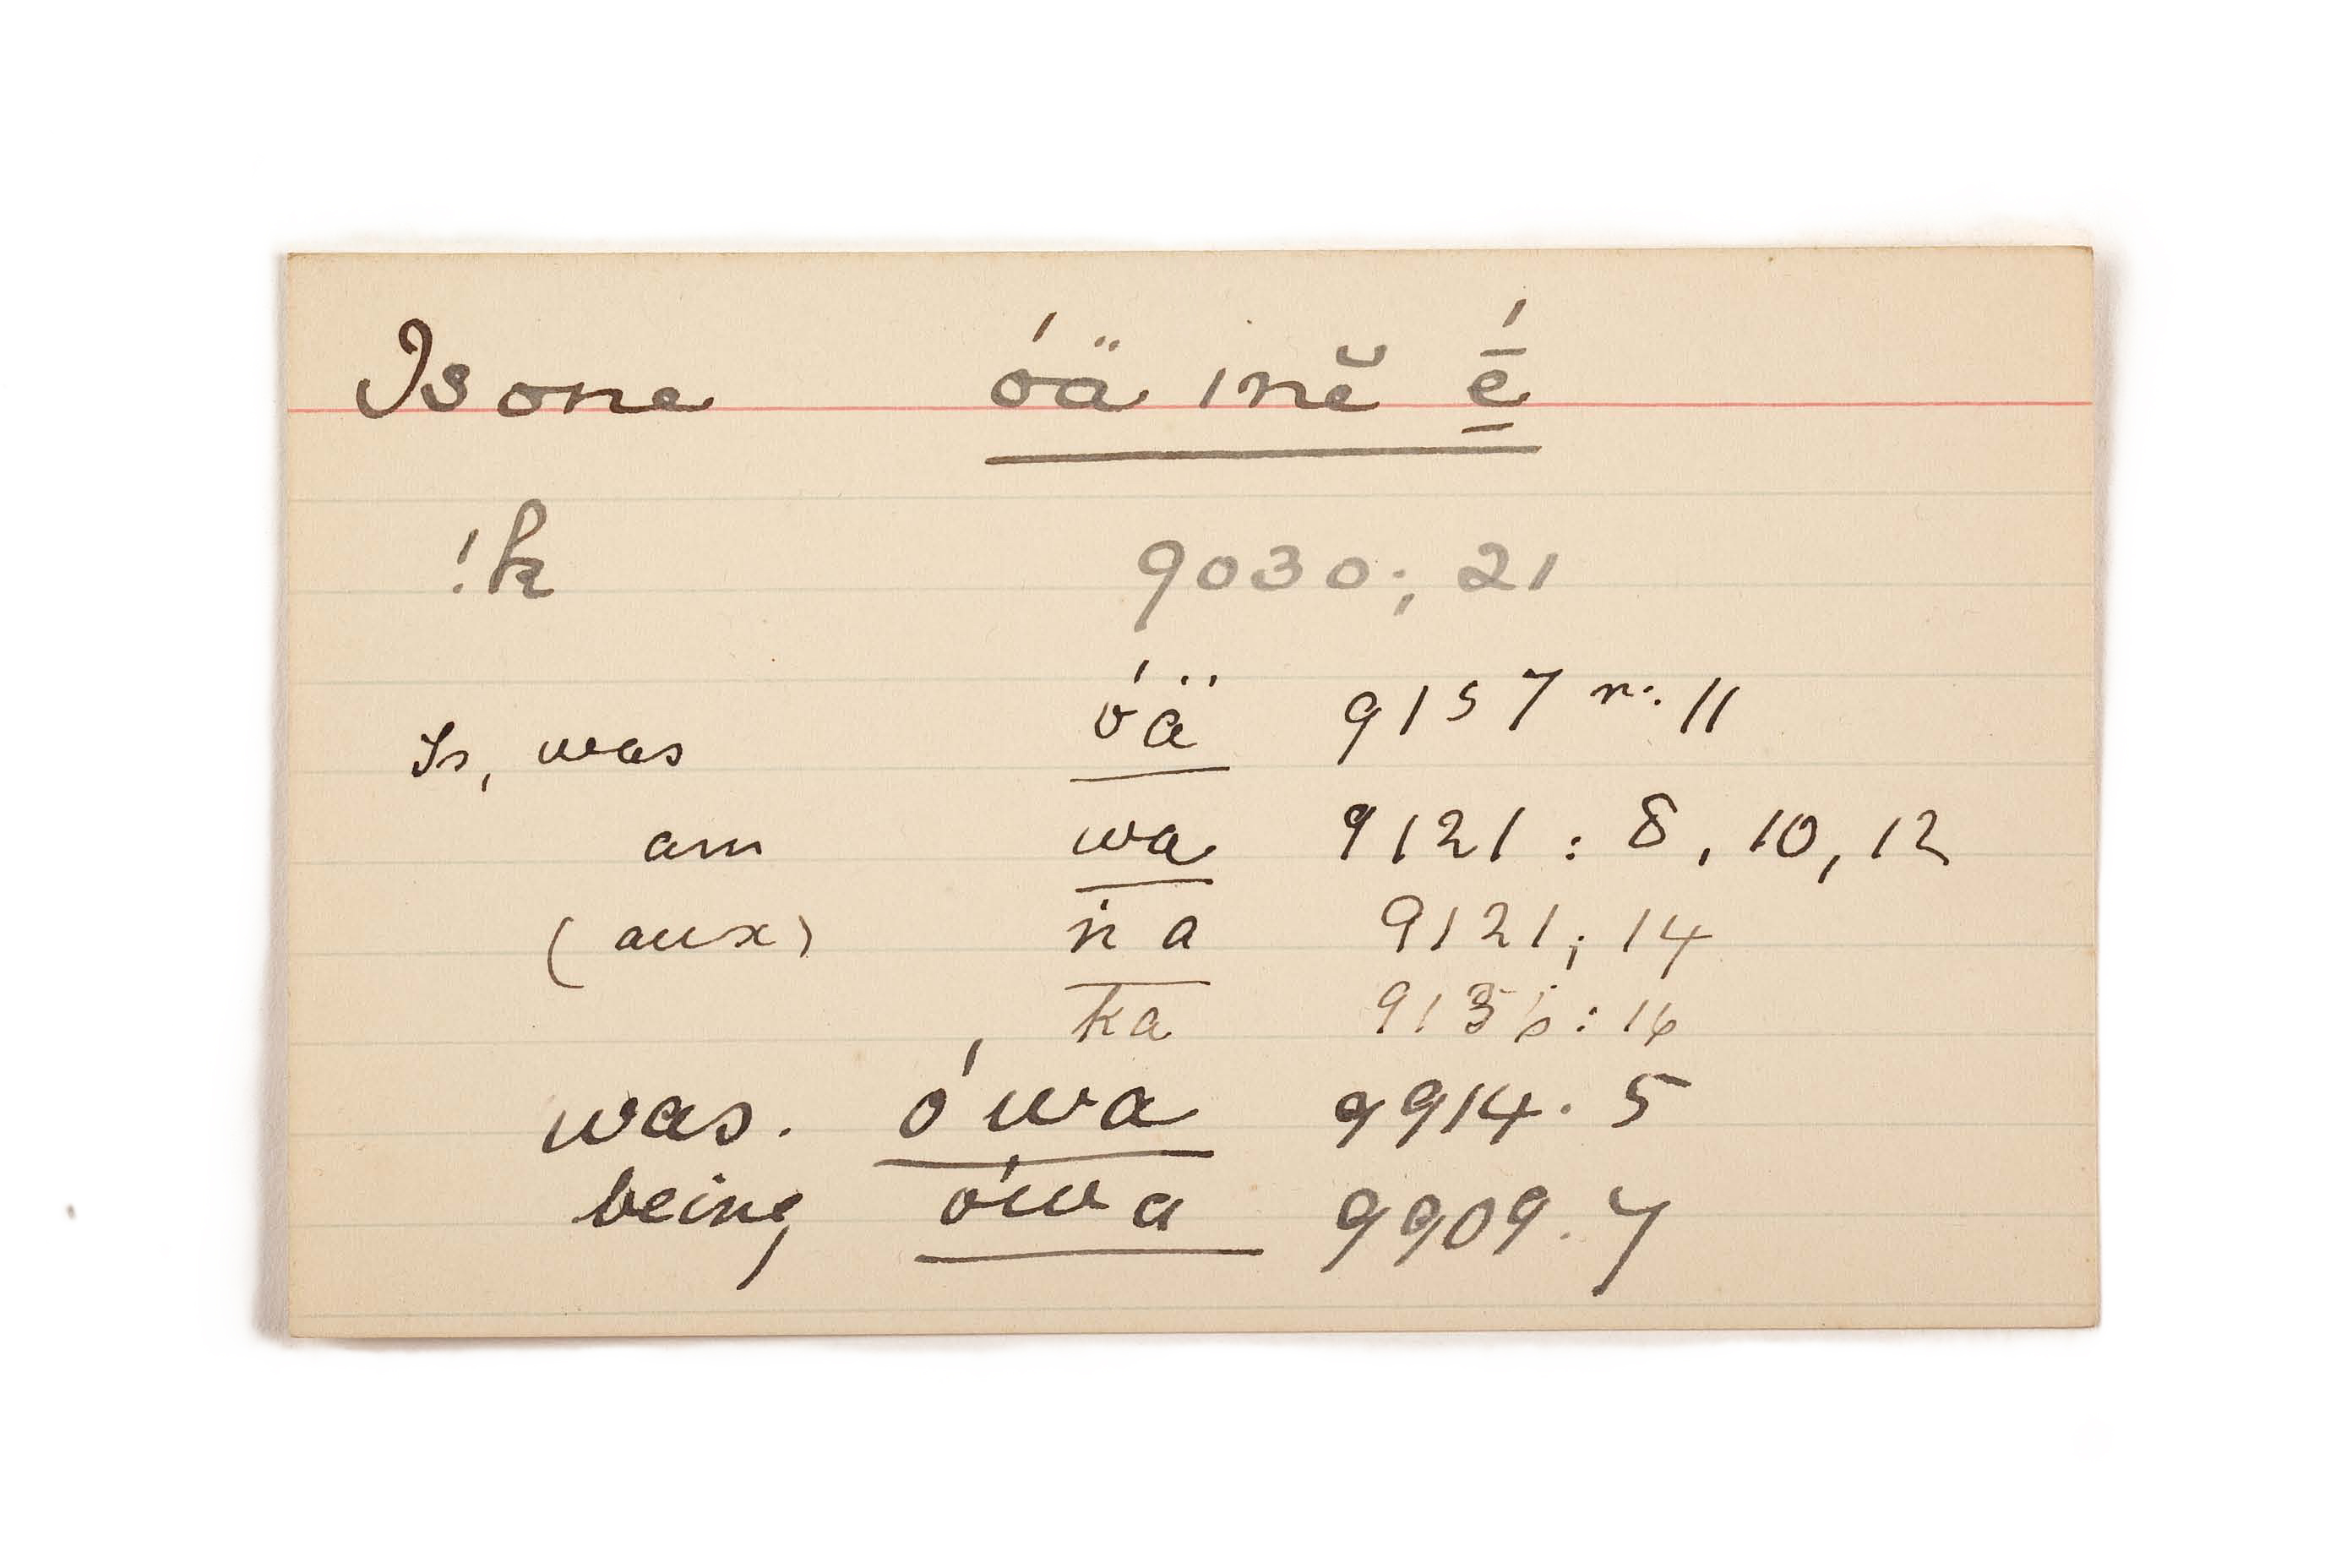 Is one óä ınĕ ḗ̱
!k 9030; 21
Is, was óä 9157 n. 11
am wa 9121 : 8, 10, 12
(aux) ṅ a 9121; 14
ka : 16
was. ó'wa 9914. 5
being óẃa 9909. 7